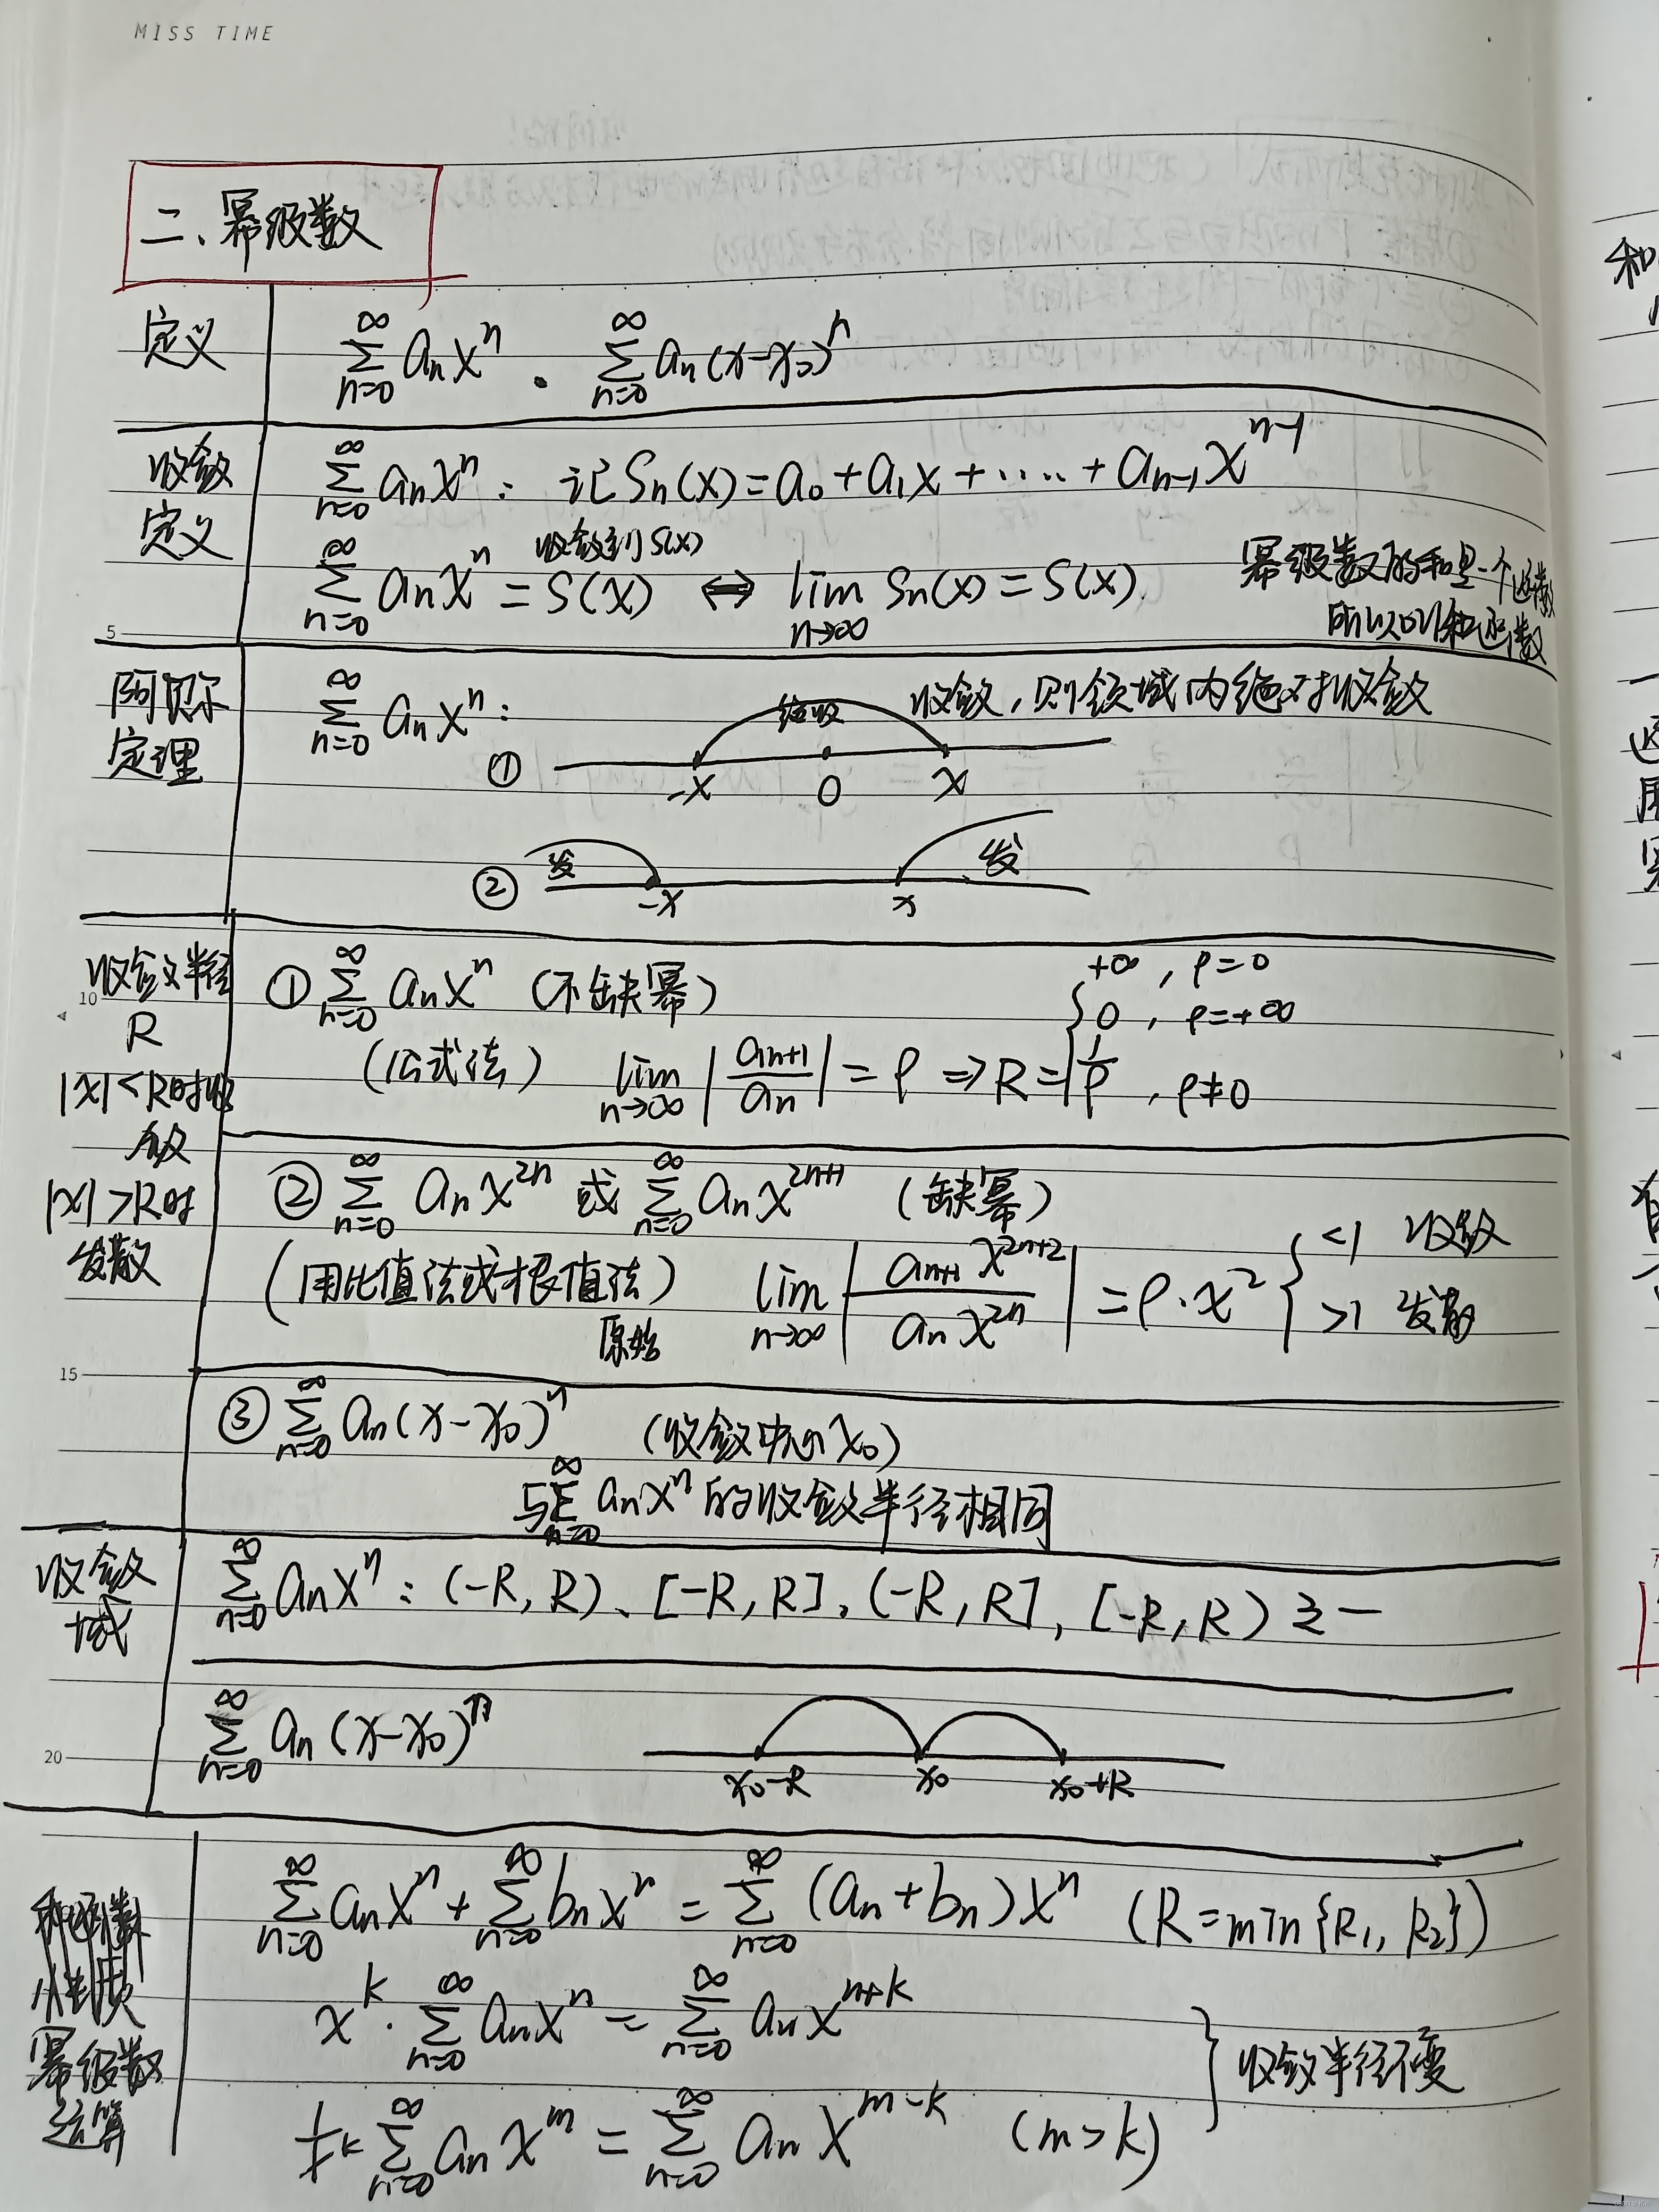 MISS TIME
二、幂级数
定义
∑_{n=0}^{∞} aₙxⁿ . ∑_{n=0}^{∞} aₙ(x-x₀)ⁿ
收敛定义
∑_{n=0}^{∞} aₙxⁿ : 记Sₙ(x)=a₀+a₁x+·····+aₙ₋₁xⁿ⁻¹
收敛到S(x)
∑_{n=0}^{∞} aₙxⁿ = S(x) ⇔ lim_{n→∞} Sₙ(x)=S(x).
幂级数的和是一个函数
所以叫和函数
5
阿贝尔定理
∑_{n=0}^{∞} aₙxⁿ :
绝收 收敛,则领域内绝对收敛
① -x 0 x
② 发 -x x 发
收敛半径
R
|x|<R时收敛
|x|>R时发散
10
① ∑_{n=0}^{∞} aₙxⁿ (不缺幂)
(公式法) lim_{n→∞} |aₙ₊₁/aₙ| = ρ ⇒ R = { +∞ , ρ=0
0 , ρ=+∞
1/ρ , ρ≠0
② ∑_{n=0}^{∞} aₙx²ⁿ 或 ∑_{n=0}^{∞} aₙx²ⁿ⁺¹ (缺幂)
(用比值法或根值法) lim_{n→∞} |aₙ₊₁x²ⁿ⁺²/aₙx²ⁿ| = ρ·x² { <1 收敛
>1 发散
原始
15
③ ∑_{n=0}^{∞} aₙ(x-x₀)ⁿ (收敛中心为x₀)
与∑_{n=0}^{∞} aₙxⁿ的收敛半径相同
收敛域
∑_{n=0}^{∞} aₙxⁿ : (-R,R)、[-R,R]、(-R,R]、[-R,R) 之一
20
∑_{n=0}^{∞} aₙ(x-x₀)ⁿ
x₀-R x₀ x₀+R
和函数
幂级数运算
∑_{n=0}^{∞} aₙxⁿ + ∑_{n=0}^{∞} bₙxⁿ = ∑_{n=0}^{∞} (aₙ+bₙ)xⁿ (R=min{R₁,R₂})
xᵏ · ∑_{n=0}^{∞} aₙxⁿ = ∑_{n=0}^{∞} aₙxⁿ⁺ᵏ
1/xᵏ ∑_{n=0}^{∞} aₙxᵐ = ∑_{n=0}^{∞} aₙxᵐ⁻ᵏ (m>k)
} 收敛半径不变